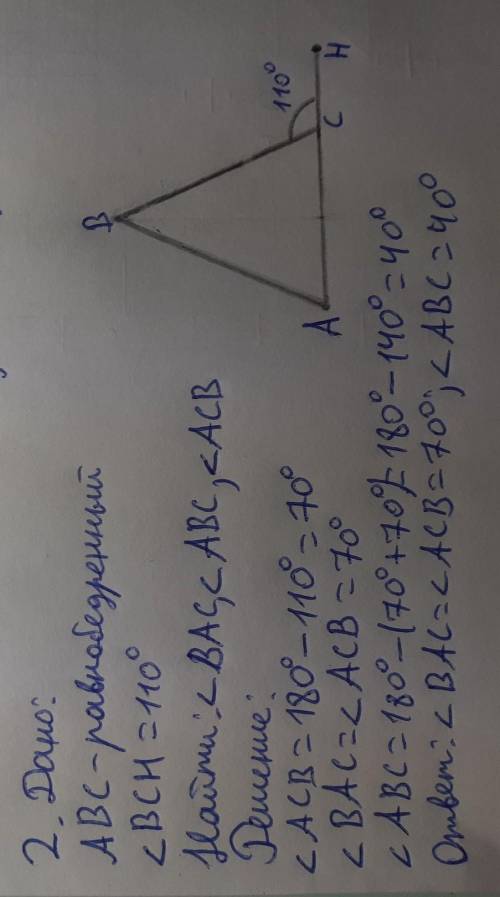 2. Дано:
ABC – равнобедренный
<BCH = 110°
Найти: <BAC, <ABC, <ACB
Решение:
<ACB = 180° – 110° = 70°
<BAC = <ACB = 70°
<ABC = 180° – (70° + 70°) = 180° – 140° = 40°
Ответ: <BAC = <ACB = 70°; <ABC = 40°
B
110°
A
C
H